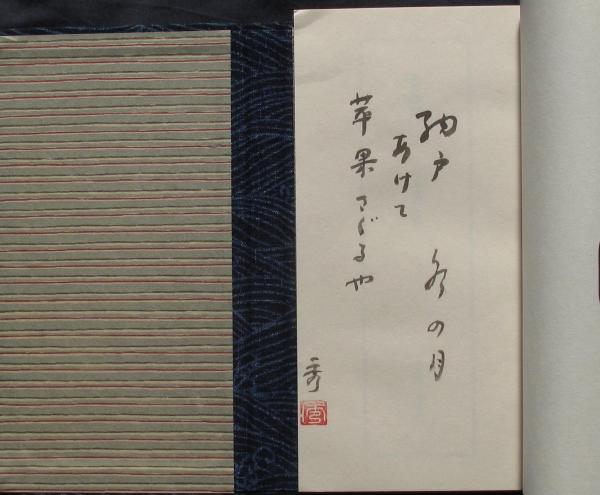 納戸
あけて
苹果さぐるや
冬の月
秀